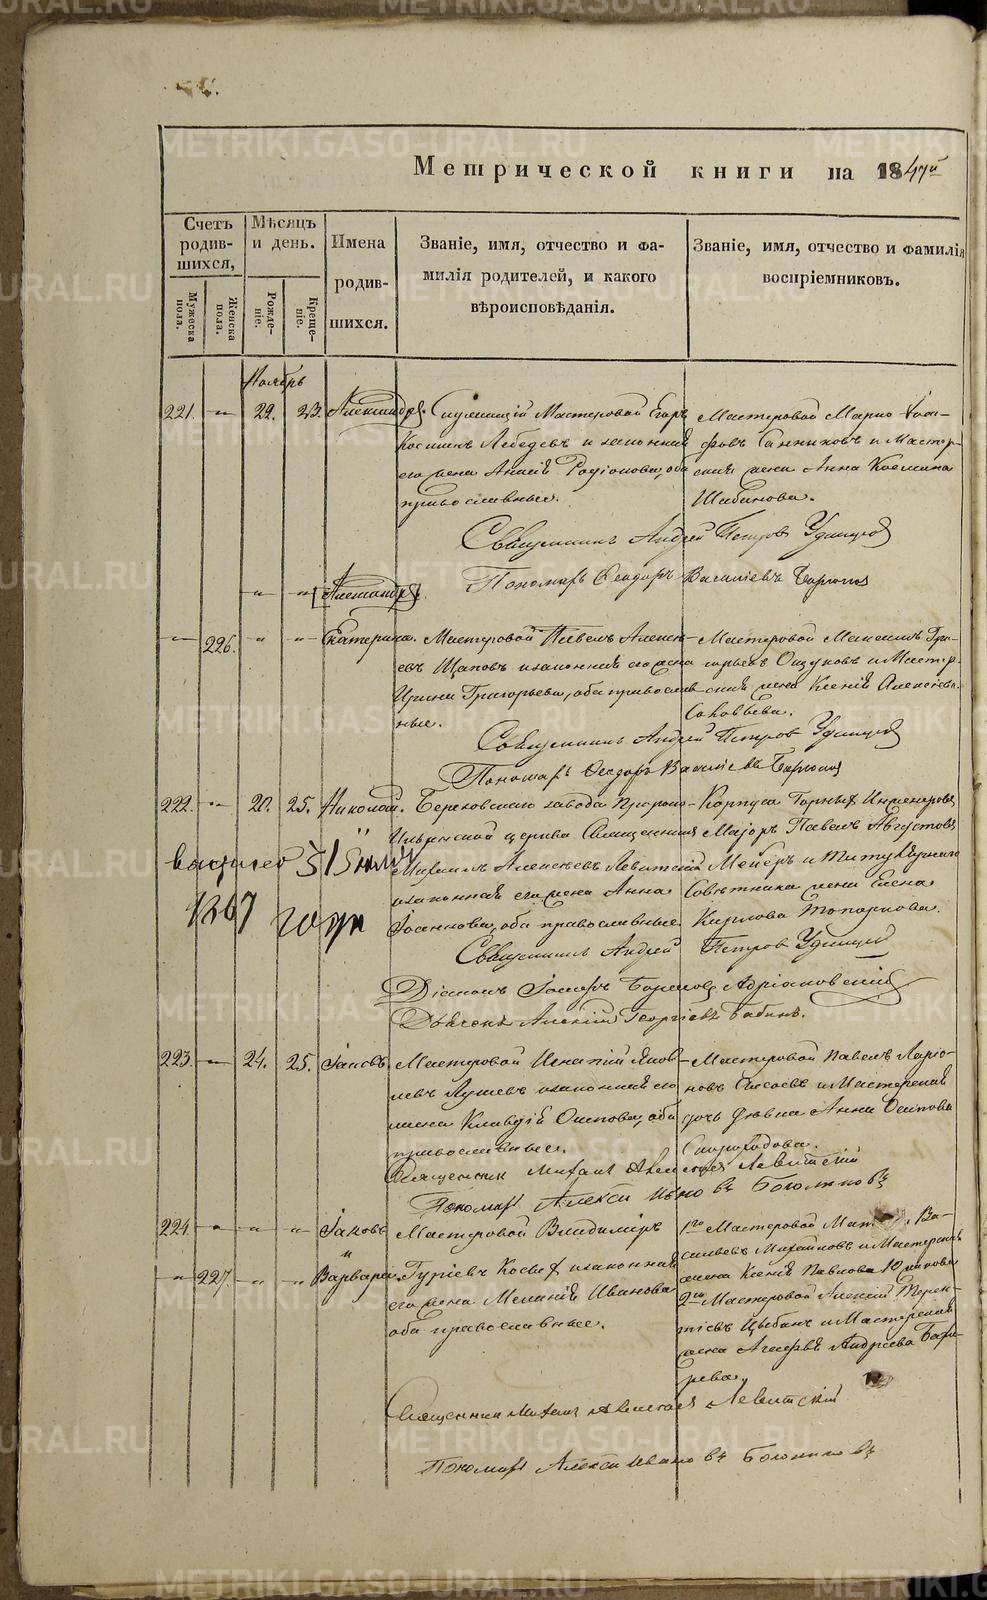 Метрической книги на 1847й
Счетъ родившихся,
Мужеска пола.
Женска пола.
Мѣсяцъ и день.
Рожденіе.
Крещеніе.
Имена родившихся.
Званіе, имя, отчество и фамилія родителей, и какого вѣроисповѣданія.
Званіе, имя, отчество и фамилія воспріемниковъ.
Ноябрь
221. — 22. 23. Александръ.
Мастеровой Егоръ
Косминъ Лебедевъ и законная
его жена Родіонова, оба
православные.
Мастеровой
Санниковъ и Мастер-
ская жена Анна Космина
Шабанова.
Священникъ Андрей Петров Удинцов
Пономарь Феодоръ Василіевъ
Александръ
— 226. Екатерина.
Мастеровой Павелъ Алексѣ-
евъ Щаповъ и законная его жена
Ирина Григорьева, оба православ-
ные.
Мастеровой Максимъ Гри-
горьевъ и Мастер-
ская жена Ксенія Алексѣева
Соловьева.
Священникъ Андрей Петров Удинцов
Пономарь Феодоръ Василіевъ
222. — 20. 25. Николай.
Березовскаго завода Пророко-
Ильинской церкви Священникъ
Михаилъ Алексѣевъ Левитскій
и законная его жена Анна
Іоаннова, оба православные.
Корпуса Горныхъ Инженеровъ
Маіоръ Павелъ Августовъ
Мейеръ и Титулярнаго
Совѣтника жена Елена
Карлова Топоркова.
1867 года
Священникъ Андрей Петров Удинцов
Діаконъ Іосифъ
Дьячекъ Алексій Георгіевъ Бабинъ.
223. — 24. 25. Іаковъ.
Мастеровой Игнатій Яков-
левъ и законная его
жена Клавдія Осипова, оба
православные.
Мастеровой Павелъ Ларіо-
новъ и Мастерская
дочь дѣвица Анна Осипова
Скороходова.
Священник Михаил Алексѣев Левитскій
Пономарь Алексій Ивановъ Боголюбовъ
224. — Іаковъ
и
— 227. Варвара.
Мастеровой Владиміръ
Гуріевъ и законная
его жена Меланія Иванова
оба православные.
1го Мастеровой Ва-
сильевъ и Мастерская
жена Ксенія Павлова
2й Мастеровой Алексій Терен-
тіевъ Цыбинъ и Мастерская
жена Андреева
Священник Михаил Алексѣев Левитскій
Пономарь Алексій Ивановъ
METRIKI.GASO-URAL.RU